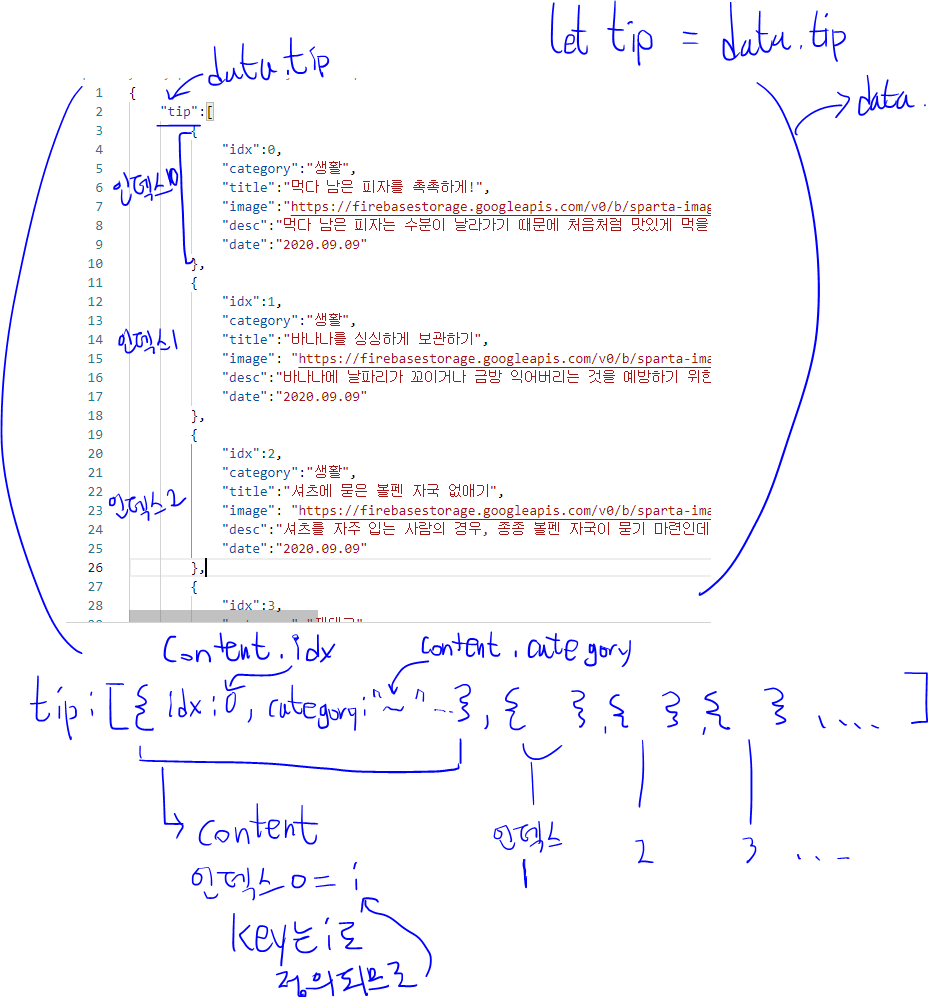 let tip = data.tip
data.tip
data.
1 {
2 "tip":[
3 {
4 "idx":0,
5 "category":"생활",
인덱스0
6 "title":"먹다 남은 피자를 촉촉하게!",
7 "image":"https://firebasestorage.googleapis.com/v0/b/sparta-imag
8 "desc":"먹다 남은 피자는 수분이 날라가기 때문에 처음처럼 맛있게 먹을
9 "date":"2020.09.09"
10 },
11 {
12 "idx":1,
13 "category":"생활",
인덱스1
14 "title":"바나나를 싱싱하게 보관하기",
15 "image": "https://firebasestorage.googleapis.com/v0/b/sparta-ima
16 "desc":"바나나에 날파리가 꼬이거나 금방 익어버리는 것을 예방하기 위한
17 "date":"2020.09.09"
18 },
19 {
20 "idx":2,
21 "category":"생활",
22 "title":"셔츠에 묻은 볼펜 자국 없애기",
인덱스2
23 "image": "https://firebasestorage.googleapis.com/v0/b/sparta-ima
24 "desc":"셔츠를 자주 입는 사람의 경우, 종종 볼펜 자국이 묻기 마련인데
25 "date":"2020.09.09"
26 },
27 {
28 "idx":3,
content.idx
content.category
tip:[{idx:0, category:"~"...}, { }, { }, { } .... ]
content
인덱스 1
2
3 ...
인덱스0 = i
key는 i로
정의되므로